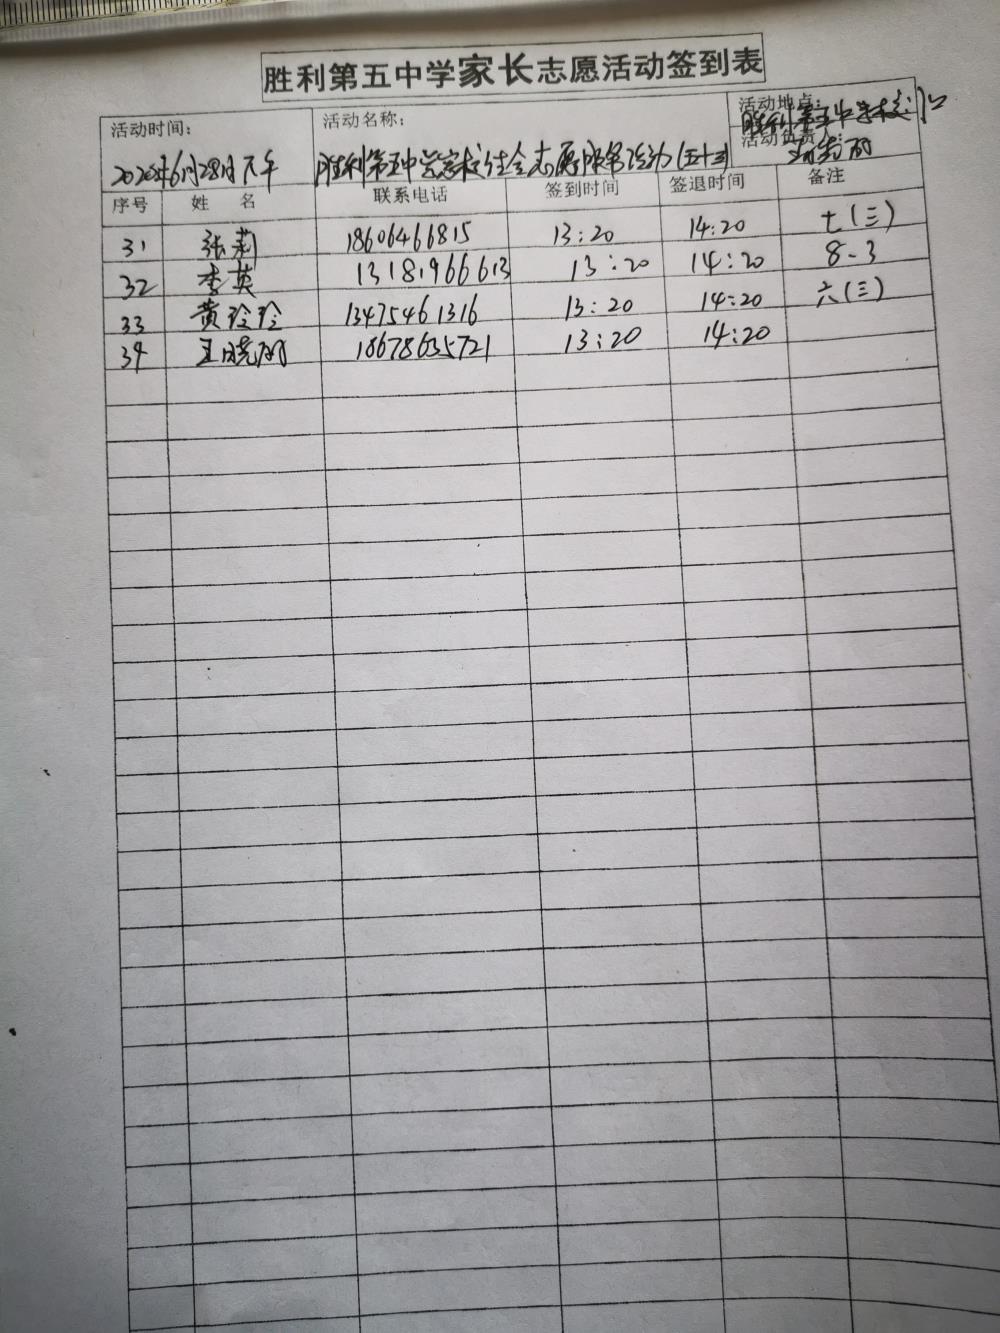 胜利第五中学家长志愿活动签到表
活动时间： 活动名称： 活动地点：
胜利第五中学校门口
2020年6月28日下午 胜利第五中学家校社会志愿服务活动(五十三) 活动负责人：
序号 姓 名 联系电话 签到时间 签退时间 备注
31 张莉 18606466815 13:20 14:20 七(三)
32 李英 13181966613 13:20 14:20 8-3
33 黄玲玲 13475461316 13:20 14:20 六(三)
34 王晓丽 18678635721 13:20 14:20